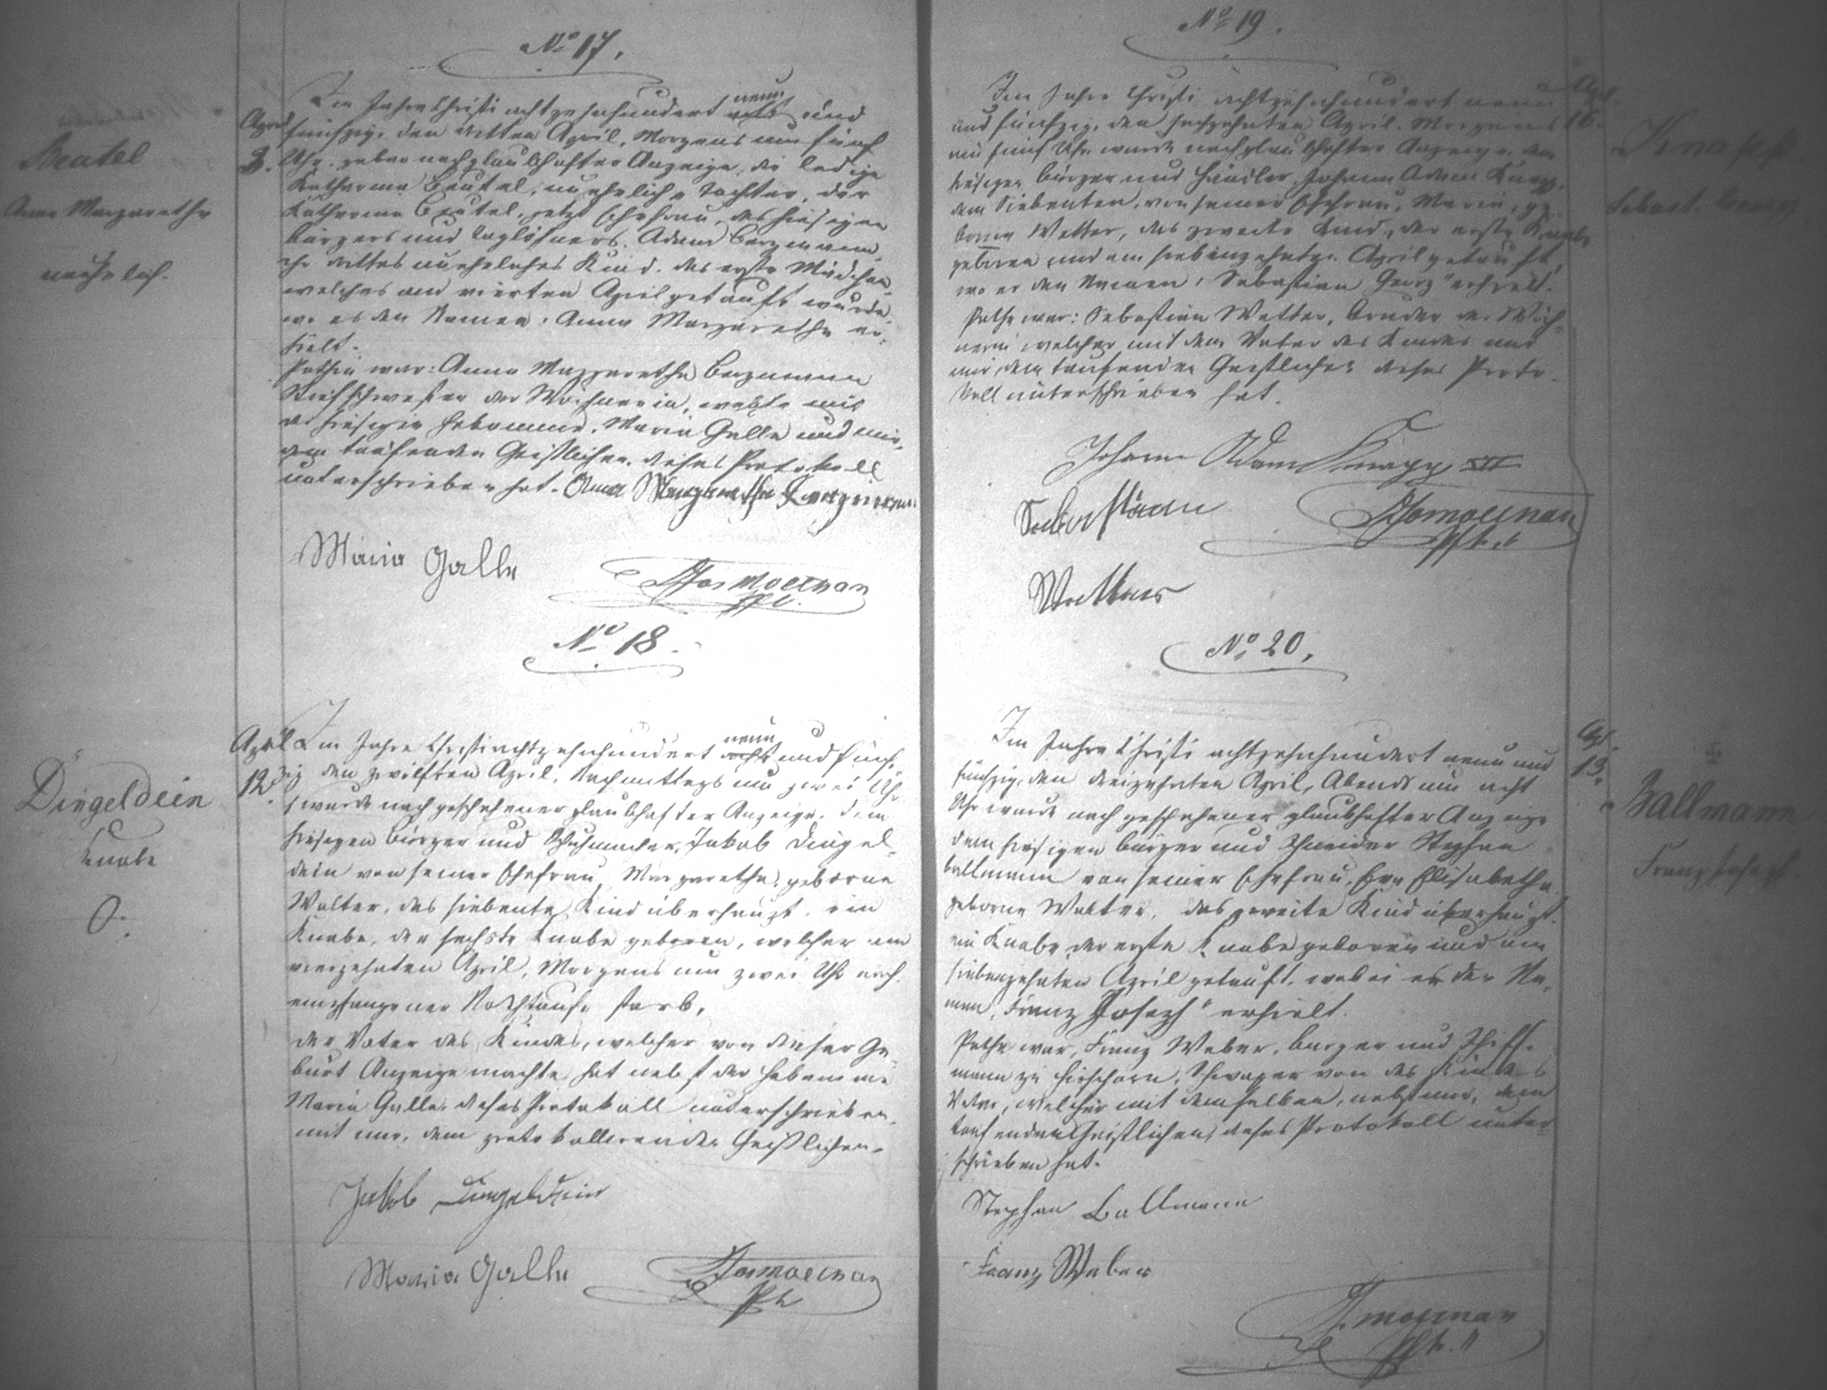 No 17.
Im Jahre Christi achtzehnhundert neun und
fünfzig, den dritten April, Morgens um fünf
Uhr, gebar nach glaubhafter Anzeige, die ledige
Katharina Beutel, uneheliche Tochter, der
Katharina Beutel, jetzt Ehefrau des hiesigen
Bürgers und Taglöhners, Adam Bergmann,
ihr drittes uneheliches Kind, das erste Mädchen,
welches am vierten April getauft wurde,
wo es den Namen: Anna Margaretha er-
hielt.
Pathin war: Anna Margaretha Bergmann
Stiefschwester der Wöchnerin, welche mit
der hiesigen Hebamme, Maria Galle und mir,
dem taufenden Geistlichen, dieses Protokoll
unterschrieben hat. Anna Margaretha Bergmann
Maria Galle
April
3.
Beutel
Anna Margaretha
unehelich.
No 18.
Im Jahre Christi achtzehnhundert neun und fünf-
zig den zwölften April, Nachmittags um zwei Uhr
wurde nach geschehener glaubhafter Anzeige, dem
hiesigen Bürger und Schumacher, Jakob Dingel-
dein von seiner Ehefrau, Margaretha, geborne
Walter, das siebente Kind überhaupt, ein
Knabe, der sechste Knabe geboren, welcher am
vierzehnten April, Morgens um zwei Uhr nach
empfangener Nothtaufe starb,
der Vater des Kindes, welcher von dieser Ge-
burt Anzeige machte, hat nebst der Hebamme
Maria Galle, dieses Protokoll unterschrieben
mit mir, dem protokollirenden Geistlichen.
Jakob Dingeldein
Maria Galle
April
12.
Dingeldein
Knabe
No 19.
Im Jahre Christi achtzehnhundert neun
und fünfzig, den sechzehnten April, Morgens
um fünf Uhr wurde nach glaubhafter Anzeige dem
hiesigen Bürger und Händler, Johann Adam Knapp,
dem Siebenten, von seiner Ehefrau, Maria, ge-
borne Wetter, das zweite Kind, der erste Knabe
geboren und am siebenzehnten April getauft,
wo er den Namen: "Sebastian Georg" erhielt.
Pathe war: Sebastian Wetter, Bruder der Wöch-
nerin welcher mit dem Vater des Kindes und
mir, dem taufenden Geistlichen dieses Proto-
koll unterschrieben hat.
Johann Adam Knapp VII
Sebastian
Wetter
16.
Knapp
Sebast. Georg
No 20.
Im Jahre Christi achtzehnhundert neun und
fünfzig, den dreizehnten April, Abends um acht
Uhr wurde nach geschehener glaubhafter Anzeige
dem hiesigen Bürger und Schneider Stephan
Ballmann von seiner Ehefrau, Eva Elisabetha
geborne Walter, das zweite Kind überhaupt,
ein Knabe, der erste Knabe geboren und am
siebenzehnten April getauft, wobei er den Na-
men "Franz Joseph" erhielt.
Pathe war, Franz Weber, Bürger und Schiff-
mann zu Hirschorn, Schwager von des Kindes
Vater, welcher mit demselben, nebst mir, dem
taufenden Geistlichen, dieses Protokoll unter-
schrieben hat.
Stephan Ballmann
Franz Weber
13.
Ballmann
Franz Joseph